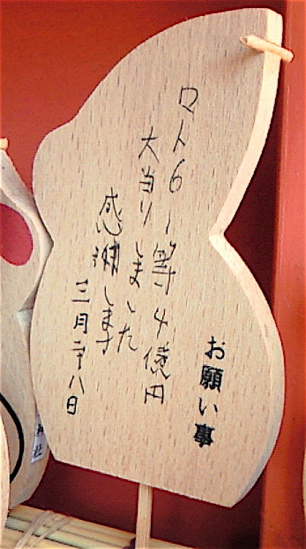 お願い事
ロト6 1等4億円
大当りしました
感謝します
三月二十八日
神社